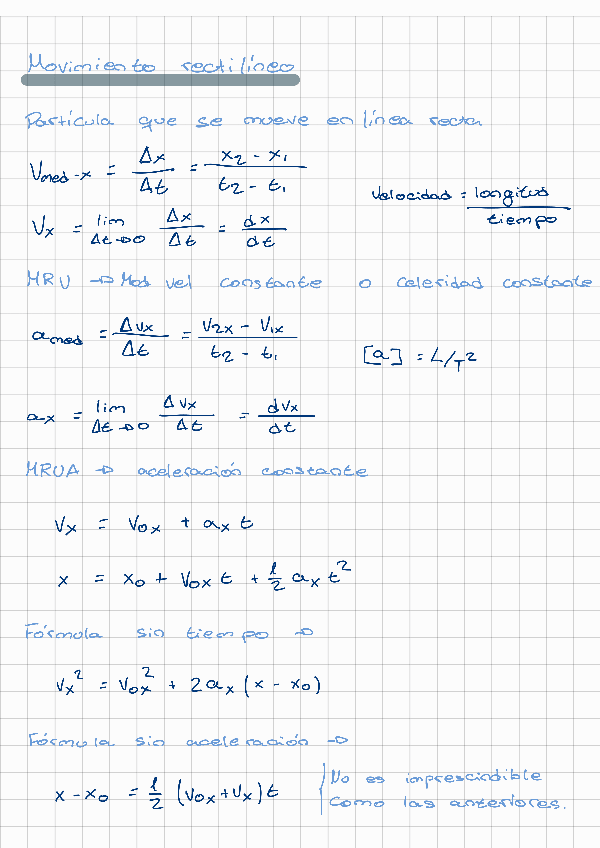 Movimiento rectilíneo
Partícula que se mueve en línea recta
Vmed-x = Δx/Δt = (x₂ - x₁)/(t₂ - t₁)
Velocidad = longitud/tiempo
Vx = lim Δt→0 Δx/Δt = dx/dt
MRU → Mod vel constante o celeridad constante
amed = Δvx/Δt = (V2x - V1x)/(t₂ - t₁)
[a] = L/T²
ax = lim Δt→0 Δvx/Δt = dvx/dt
MRUA → aceleración constante
Vx = V0x + ax t
x = x0 + V0x t + 1/2 ax t²
Fórmula sin tiempo →
Vx² = V0x² + 2ax (x - x0)
Fórmula sin aceleración →
x - x0 = 1/2 (V0x + Vx) t
No es imprescindible
como las anteriores.